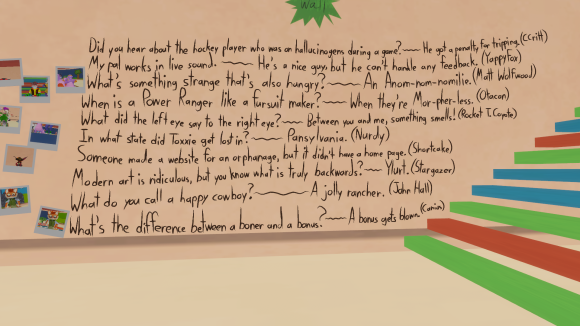 wall
Did you hear about the hockey player who was on hallucinogens during a game?~~ He got a penalty for tripping. (CCritt)
My pal works in live sound. ~~ He's a nice guy but he can't handle any feedback. (Yappyfox)
What's something strange that's also hungry? ~~ An Anom-nom-nomilie. (Matt Wolfwood)
When is a Power Ranger like a fursuit maker? ~~ When they're Mor-pher-less. (Otacon)
What did the left eye say to the right eye? ~~ Between you and me, something smells! (Rocket T. Coyote)
In what state did Toxxie get lost in? ~~ Pansylvania. (Nurdy)
Someone made a website for an orphanage, but it didn't have a home page. (Shortcake)
Modern art is ridiculous, but you know what is truly backwards? ~~ Ylurt. (Stargazer)
What do you call a happy cowboy? ~~ A jolly rancher. (John Hall)
What's the difference between a boner and a bonus? ~~ A bonus gets blown. (Canin)